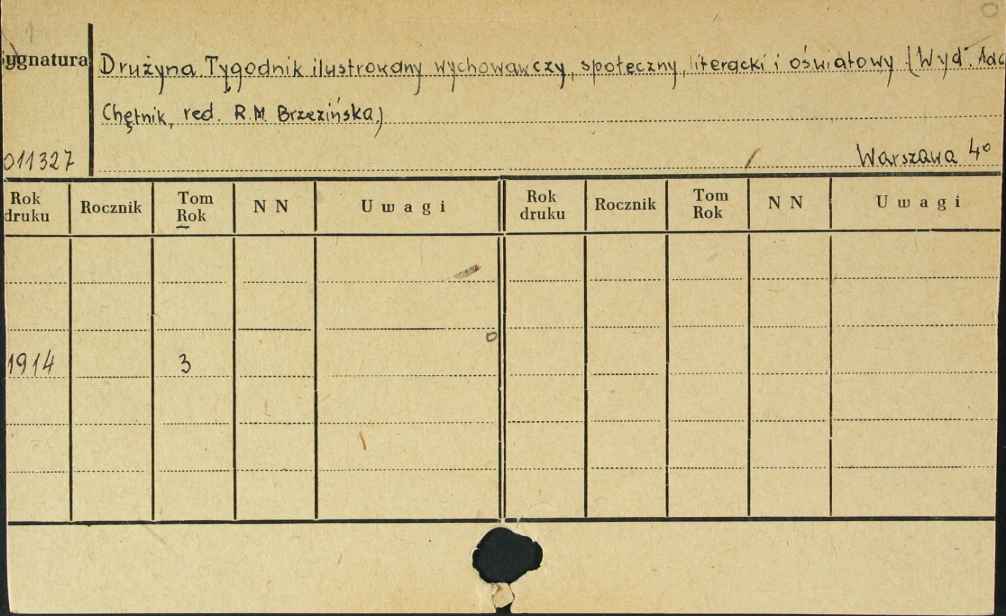 Sygnatura
Drużyna Tygodnik ilustrowany wychowawczy, społeczny, literacki i oświatowy (Wyd. Ada
Chętnik, red. R.M. Brzezińska)
011327
Warszawa 4°
Rok druku Rocznik Tom Rok N N Uwagi Rok druku Rocznik Tom Rok N N Uwagi
1914 3